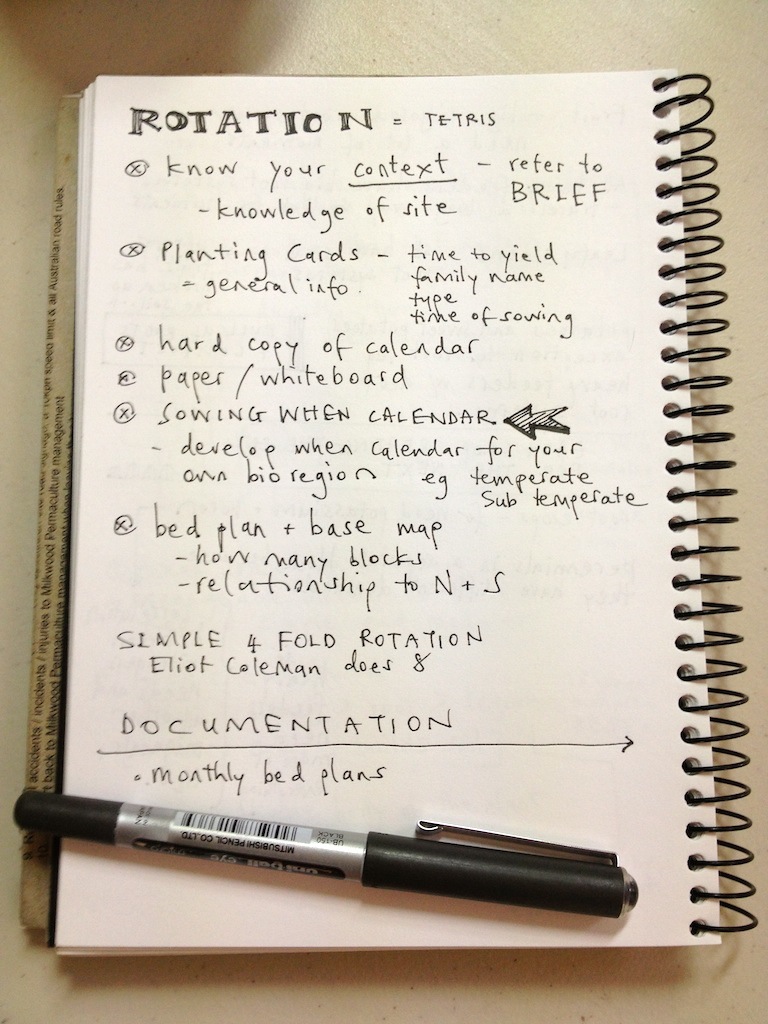 ROTATION = TETRIS
know your context - refer to
BRIEF
- knowledge of site
Planting Cards - time to yield
= general info. family name
type
time of sowing
hard copy of calendar
paper / whiteboard
SOWING WHEN CALENDAR
- develop when calendar for your
own bio region eg temperate
Sub temperate
bed plan + base map
- how many blocks
- relationship to N + S
SIMPLE 4 FOLD ROTATION
Eliot Coleman does 8
DOCUMENTATION
• monthly bed plans
UB-150
BLACK
MITSUBISHI PENCIL CO. LTD
uni-ball eye
accidents / incidents / injuries to Milkwood Permaculture management
speed limit & all Australian road rules.
back to Milkwood Permaculture management when